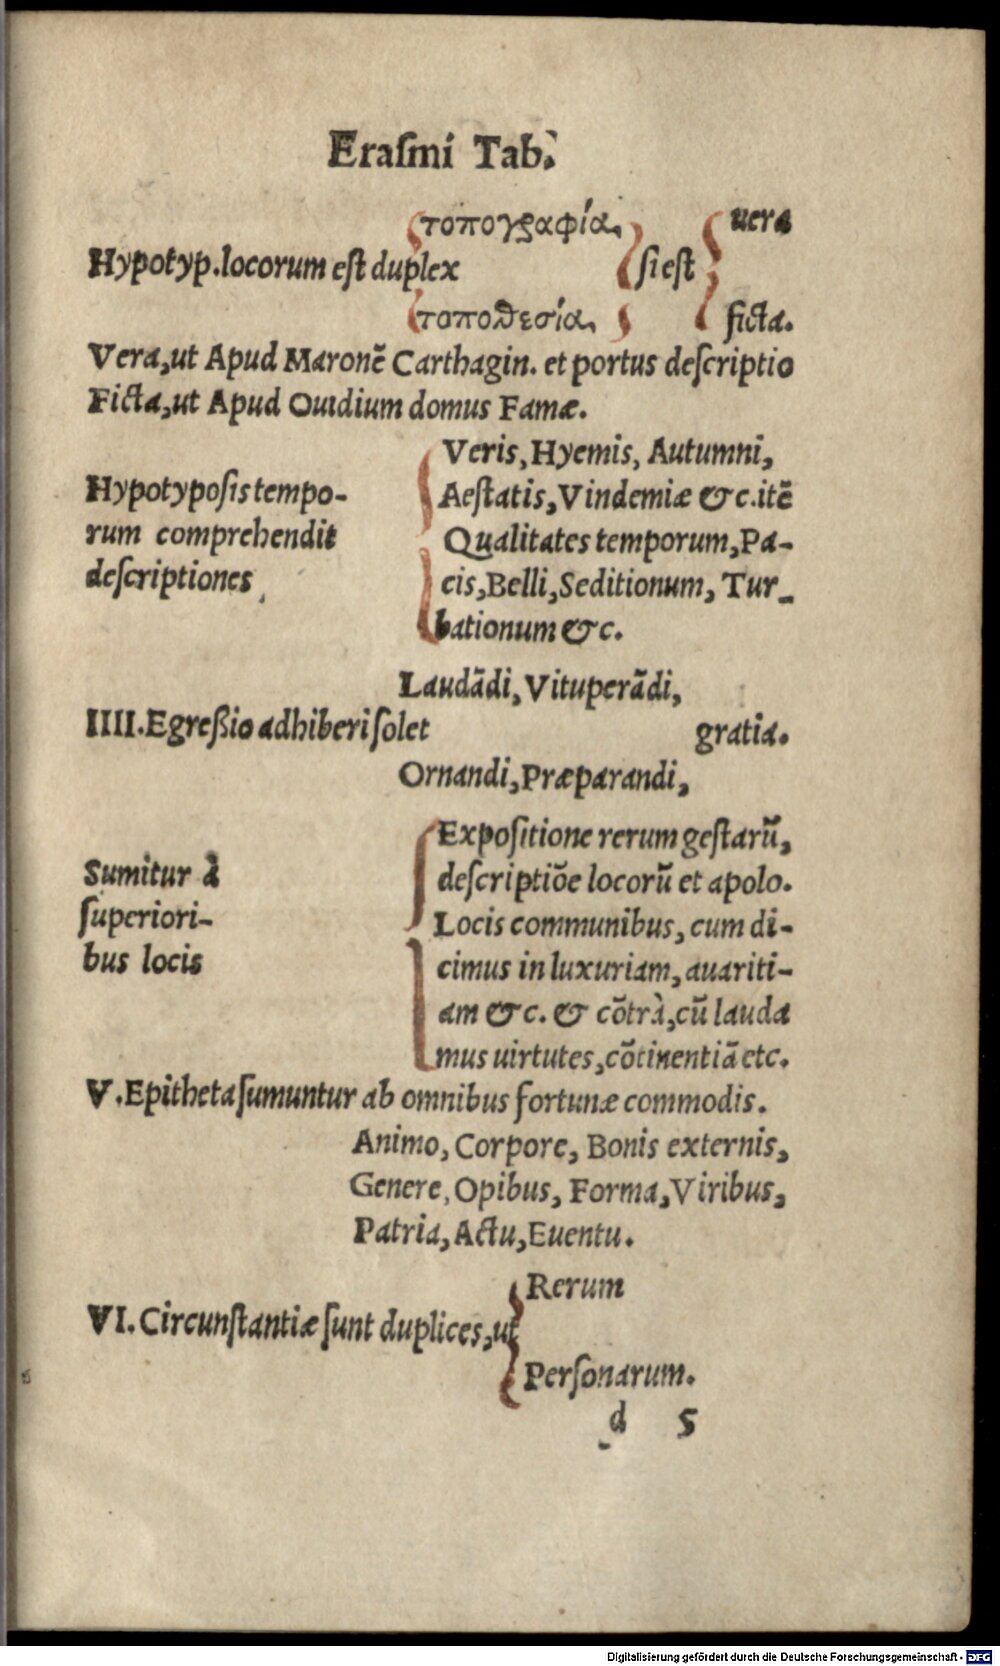 Eraſmi Tab.
τοπογραφία, uera
Hypotyp.locorum eſt duplex ſi eſt
τοποθεσία, ficta.
Vera,ut Apud Maronē Carthagin. et portus deſcriptio
Ficta,ut Apud Ouidium domus Famæ.
Veris,Hyemis, Autumni,
Hypotypoſis tempo- Aeſtatis,Vindemiæ &c.itē
rum comprehendit Qualitates temporum,Pa-
deſcriptiones cis,Belli,Seditionum, Tur-
bationum &c.
Laudādi,Vituperādi,
IIII.Egreßio adhiberi ſolet gratia.
Ornandi,Præparandi,
Expoſitione rerum geſtarū,
Sumitur à deſcriptiōe locorū et apolo.
ſuperiori- Locis communibus, cum di-
bus locis cimus in luxuriam, auariti-
am &c. & cōtrà,cū lauda
mus uirtutes,cōtinentiā etc.
V.Epitheta ſumuntur ab omnibus fortunæ commodis.
Animo, Corpore, Bonis externis,
Genere, Opibus, Forma,Viribus,
Patria,Actu,Euentu.
Rerum
VI.Circunſtantiæ ſunt duplices,ut
Perſonarum.
d 5
Digitalisierung gefördert durch die Deutsche Forschungsgemeinschaft - DFG